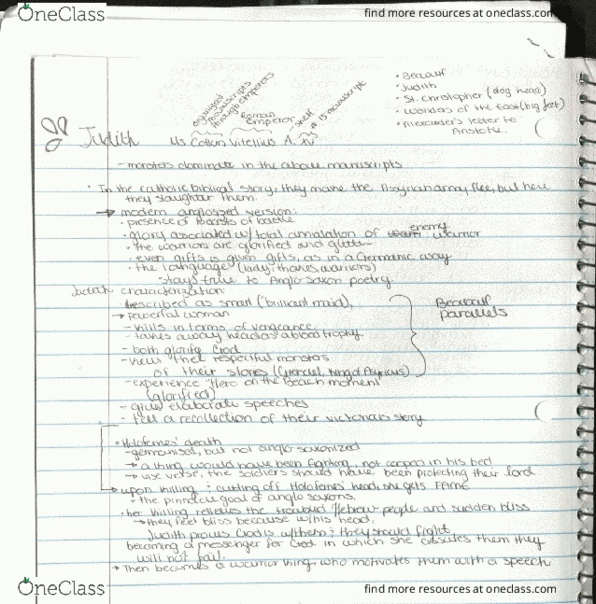 OneClass
find more resources at oneclass.com
organized manuscripts through emperors
Roman emperor
shelf
# 15 manuscript
• Beowulf
• Judith
• St. Christopher (dog head)
• Wonders of the East (big feet)
• Alexander's letter to Aristotle
Judith Ms Cotton Vitellius A. xv
- monsters dominate in the above manuscripts
• In the catholic biblical story, they make the Assyrian army flee, but here
they slaughter them.
→ modern anglosaxed version:
• presence of beasts of battle
• glory associated w/ total annialation of enemy warrior
• the warriors are glorified and glitter
• even gifts is given gifts, as in a Germanic way
• the language (lady, thanes, warriors)
stays true to Anglo saxon poetry
Judith characterization
• described as smart ("brilliant maid"),
→ powerful woman
- kills in terms of vengeance
- takes away head as a blood trophy
- both glorify God
- view their respectful monsters
of their stories (Grendel, king of Assyrians)
- experience "Hero on the Beach moment"
(glorified)
- give elaborate speeches
• tell a recollection of their victorious story
Beowulf parallels
• Holofernes' death
- germanised, but not anglo saxonized
→ a king would have been fighting, not cooped in his bed
→ vise verse, the soldiers should have been protecting their lord
→ upon killing & cutting off Holofanes' head, she gets FAME
• the pinnacle goal of anglo saxons.
• her killing relieves the troubled Hebrew people and sudden bliss
→ they feel bliss because w/ his head,
Judith proves God is w/ them & they should fight
becoming a messenger for God in which she assures them they
will not fail.
→ Then becomes a warrior king who motivates them with a speech
OneClass
find more resources at oneclass.com